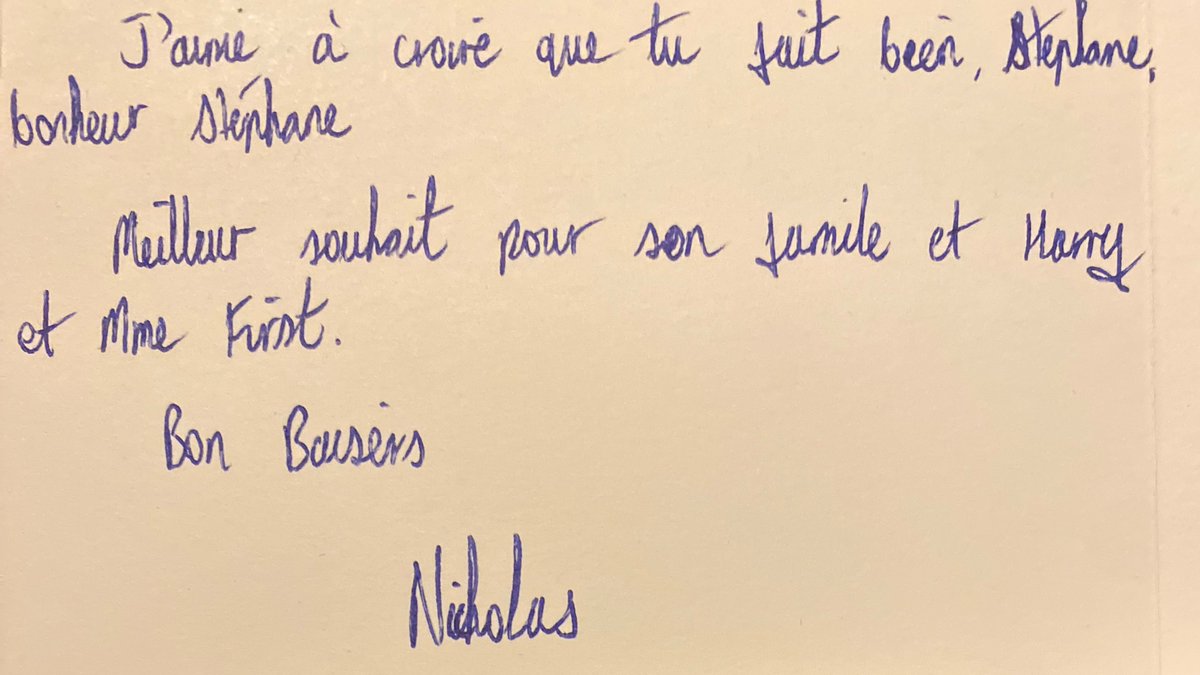 J'aime à croire que tu fait been, Stephane,
bonheur Stéphane
Meilleur souhait pour son famile et Harry
et Mme First.
Bon Baisers
Nicholas